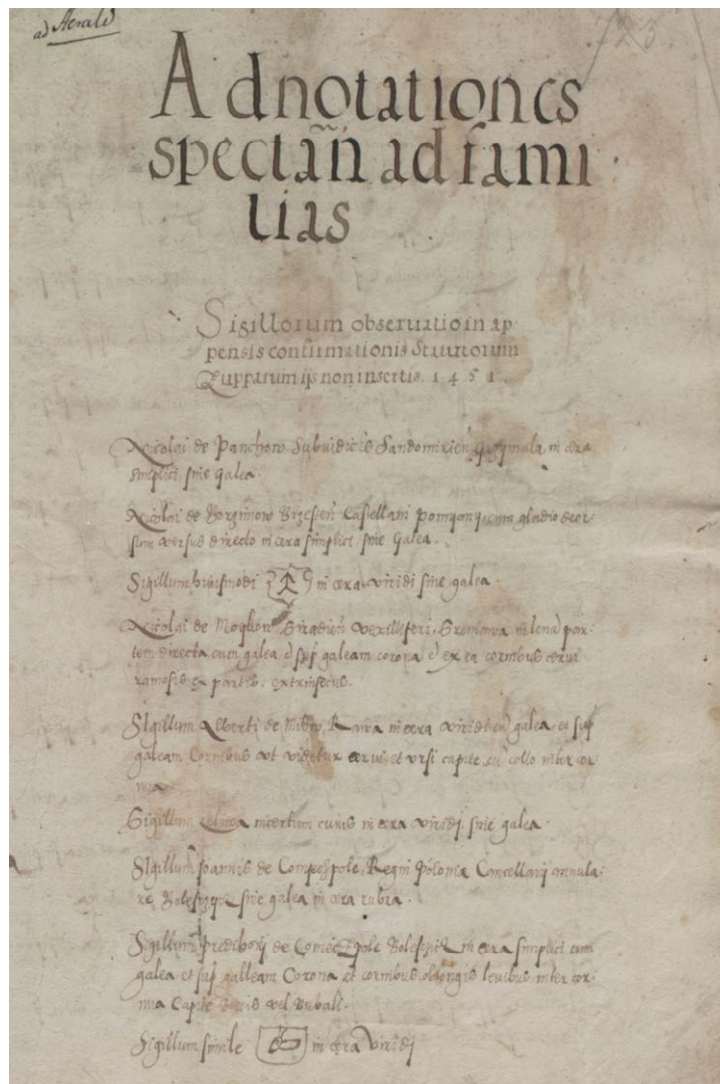 ad Herald
723.
Adnotationes
spectan̄ ad fami
lias
Sigillorum obseruatio in ap
pensis confirmationis Statutorum
Zupparum ijs non insertis. 1451.
Nicolai de Panchow Subiudicis Sandomirien̄ Grzymala in cera
simplici, sine galea.
Nicolai de Brzesten̄ Castellani gladio deor-
sum versus directo in cera simplici, sine Galea.
Sigillum huiusmodi in cera viridi sine galea.
Nicolai de Siradien̄ vexilliferi, Sreniawa in leuā par-
tem directa cum galea et sup galeam corona et ex ea cornibus cerui
ramosis ex partib. extrinsecus.
Sigillum Alberti de Rawa in cera viridi cū galea, et sup
galeam Cornibus vt videtur cerui et vrsi capite cū collo inter cor
nua
Sigillum incertum cuius in cera viridi, sine galea.
Sigillum Joannis de Regni Poloniæ Cancellarij annula-
re, sine galea in cera rubra.
Sigillum Predborij de in cera simplici cum
galea et sup galleam Corona et cornibus oblongis leuibus inter cor-
nua Capite Bouis vel Bubali.
Sigillum simile in cera viridi